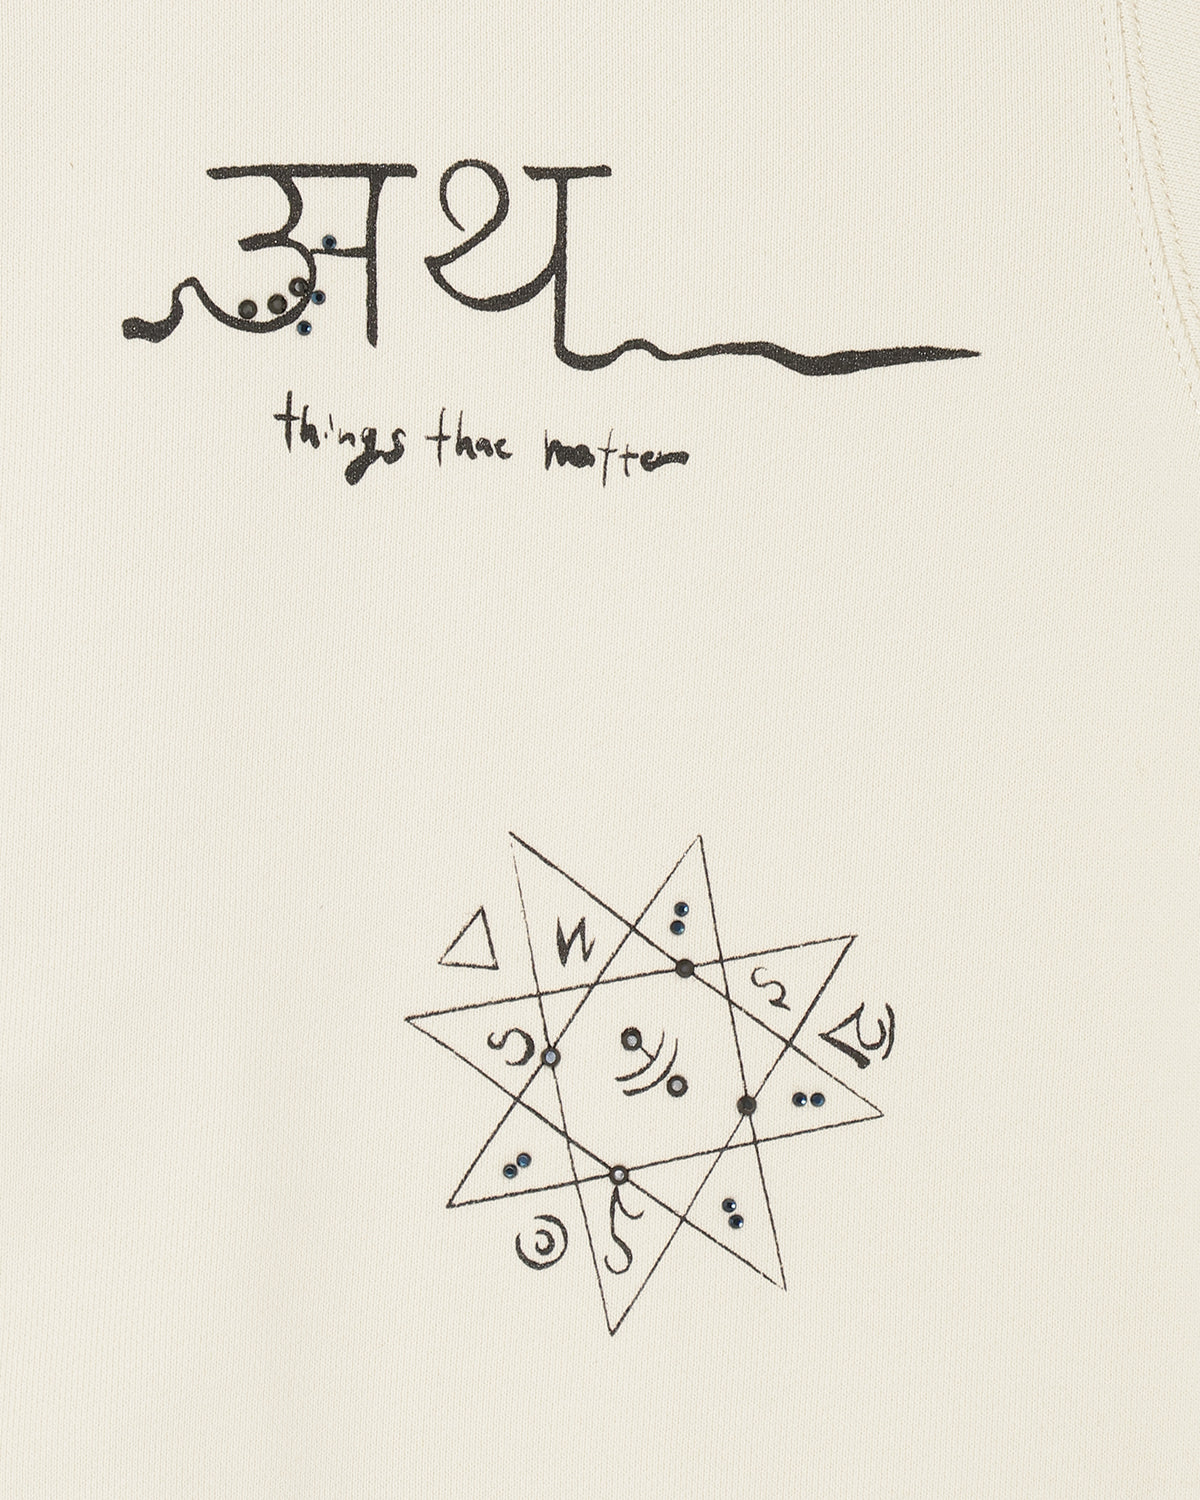 अथ
things that matter
W
S
S
S